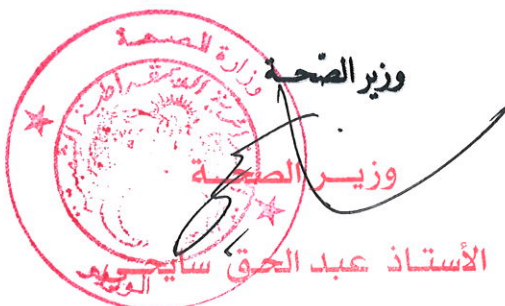 وزارة الصحة
وزير الصّحـة
وزيـر الصحـة
الأستـاذ عبد الحق سايحـي
الوزير